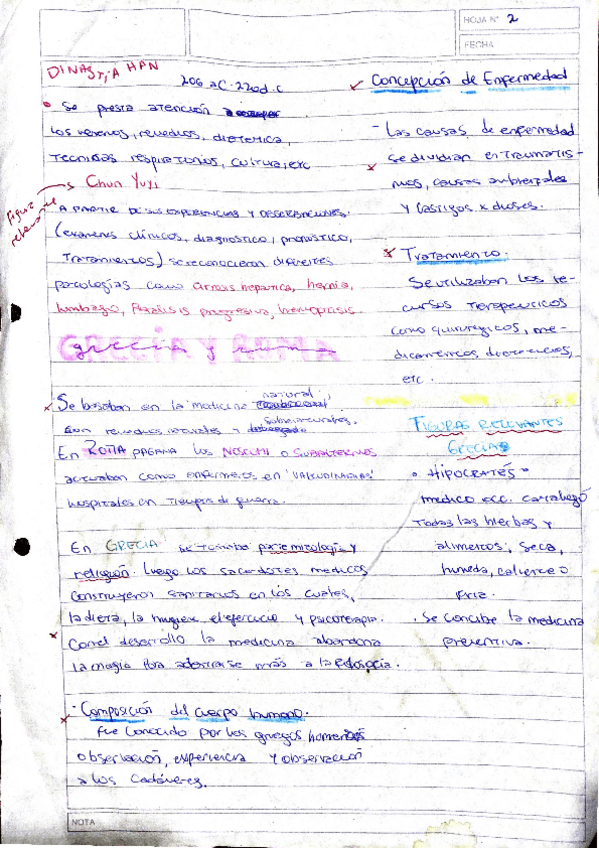 HOJA N° 2
FECHA
DINASTIA HAN
206 aC - 220 d.C
• Se presta atención a
los venenos, remedios, dietetica,
tecnicas respiratorias, cultura, etc
Figura relevante → Chun Yuyi
A PARTIR DE SUS EXPERIENCIAS Y OBSERVACIONES.
(examenes clinicos, diagnostico, pronostico,
tratamientos) se reconocieron diferentes
patologías como cirrosis hepatica, hernia,
lumbago, Parálisis progresiva, hemoptisis.
GRECIA Y ROMA
Se basaban en la medicina natural,
con remedios naturales y sobrenaturales.
En ROMA PAGANA LOS NOSCUMI O SUBALTERNOS
actuaban como enfermeros en 'VALETUDINARIAS'
hospitales en tiempo de guerra.
En GRECIA se tomaba por la mitología y
religión. Luego los sacerdotes medicos
construyeron sanitarios en los cuales,
la dieta, la higiene, el ejercicio y psicoterapia.
Con el desarrollo la medicina abandona
la magia para adentrarse más a la filosofía.
- Composición del cuerpo humano.
fue conocido por los griegos
observación, experiencia y observación
a los cadáveres.
Concepción de Enfermedad
- Las causas de enfermedad
se dividían en traumatis-
mos, causas ambientales
y castigos x dioses.
Tratamiento.
Se utilizaban los re-
cursos terapeuticos
como quirurgicos, me-
dicamentosos,
etc.
FIGURAS RELEVANTES
GRECIA
• HIPOCRATES
medico
todas las hierbas y
alimentos; seca,
humeda, caliente o
fria.
. Se concibe la medicina
preventiva.
NOTA